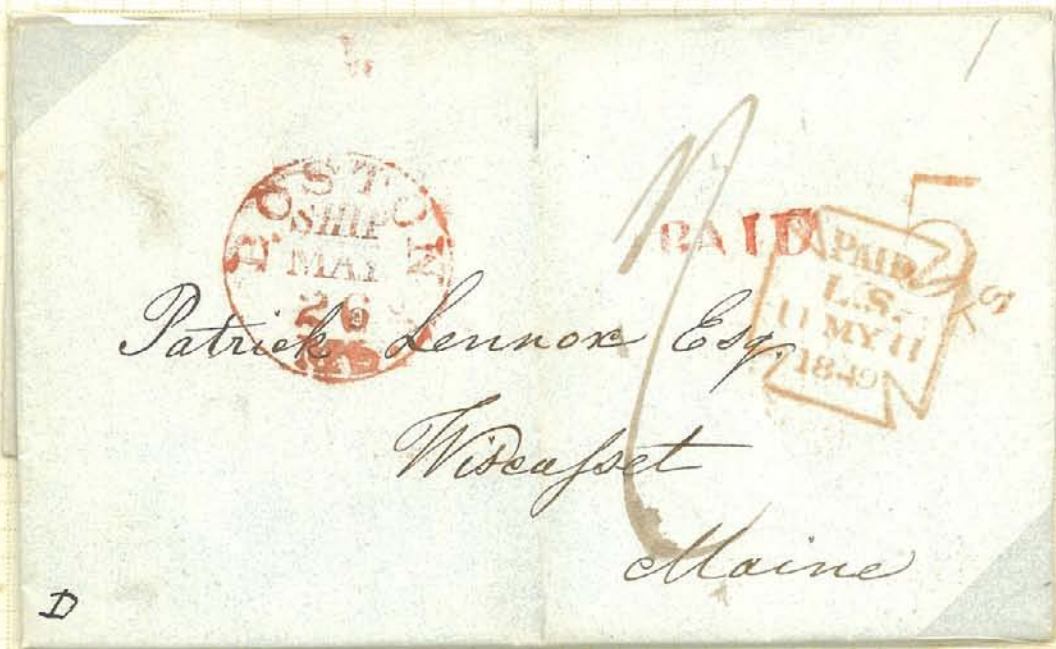 BOSTON
SHIP
MAY
26
PAID
PAID
L.S.
11 MY 11
1849
5
CTS
Patrick Lennox Esq.
Wiscaſset
Maine
D